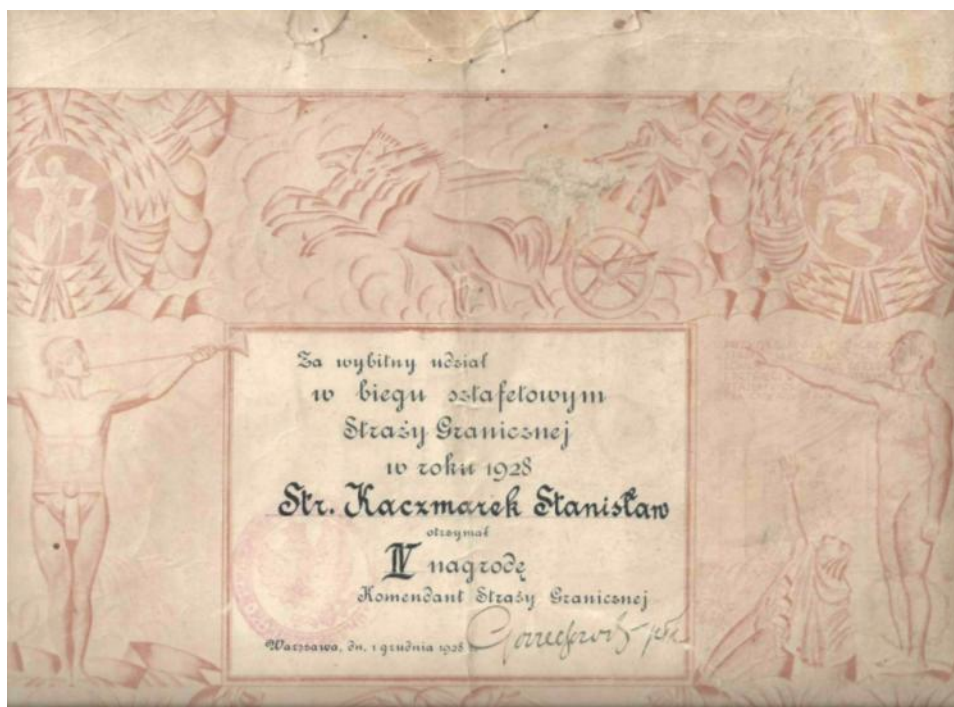 Za wybitny udział
w biegu sztafetowym
Straży Granicznej
w roku 1928
Str. Kaczmarek Stanisław
otrzymał
IV nagrodę
Komendant Straży Granicznej
Warszawa, dn. 1 grudnia 1928